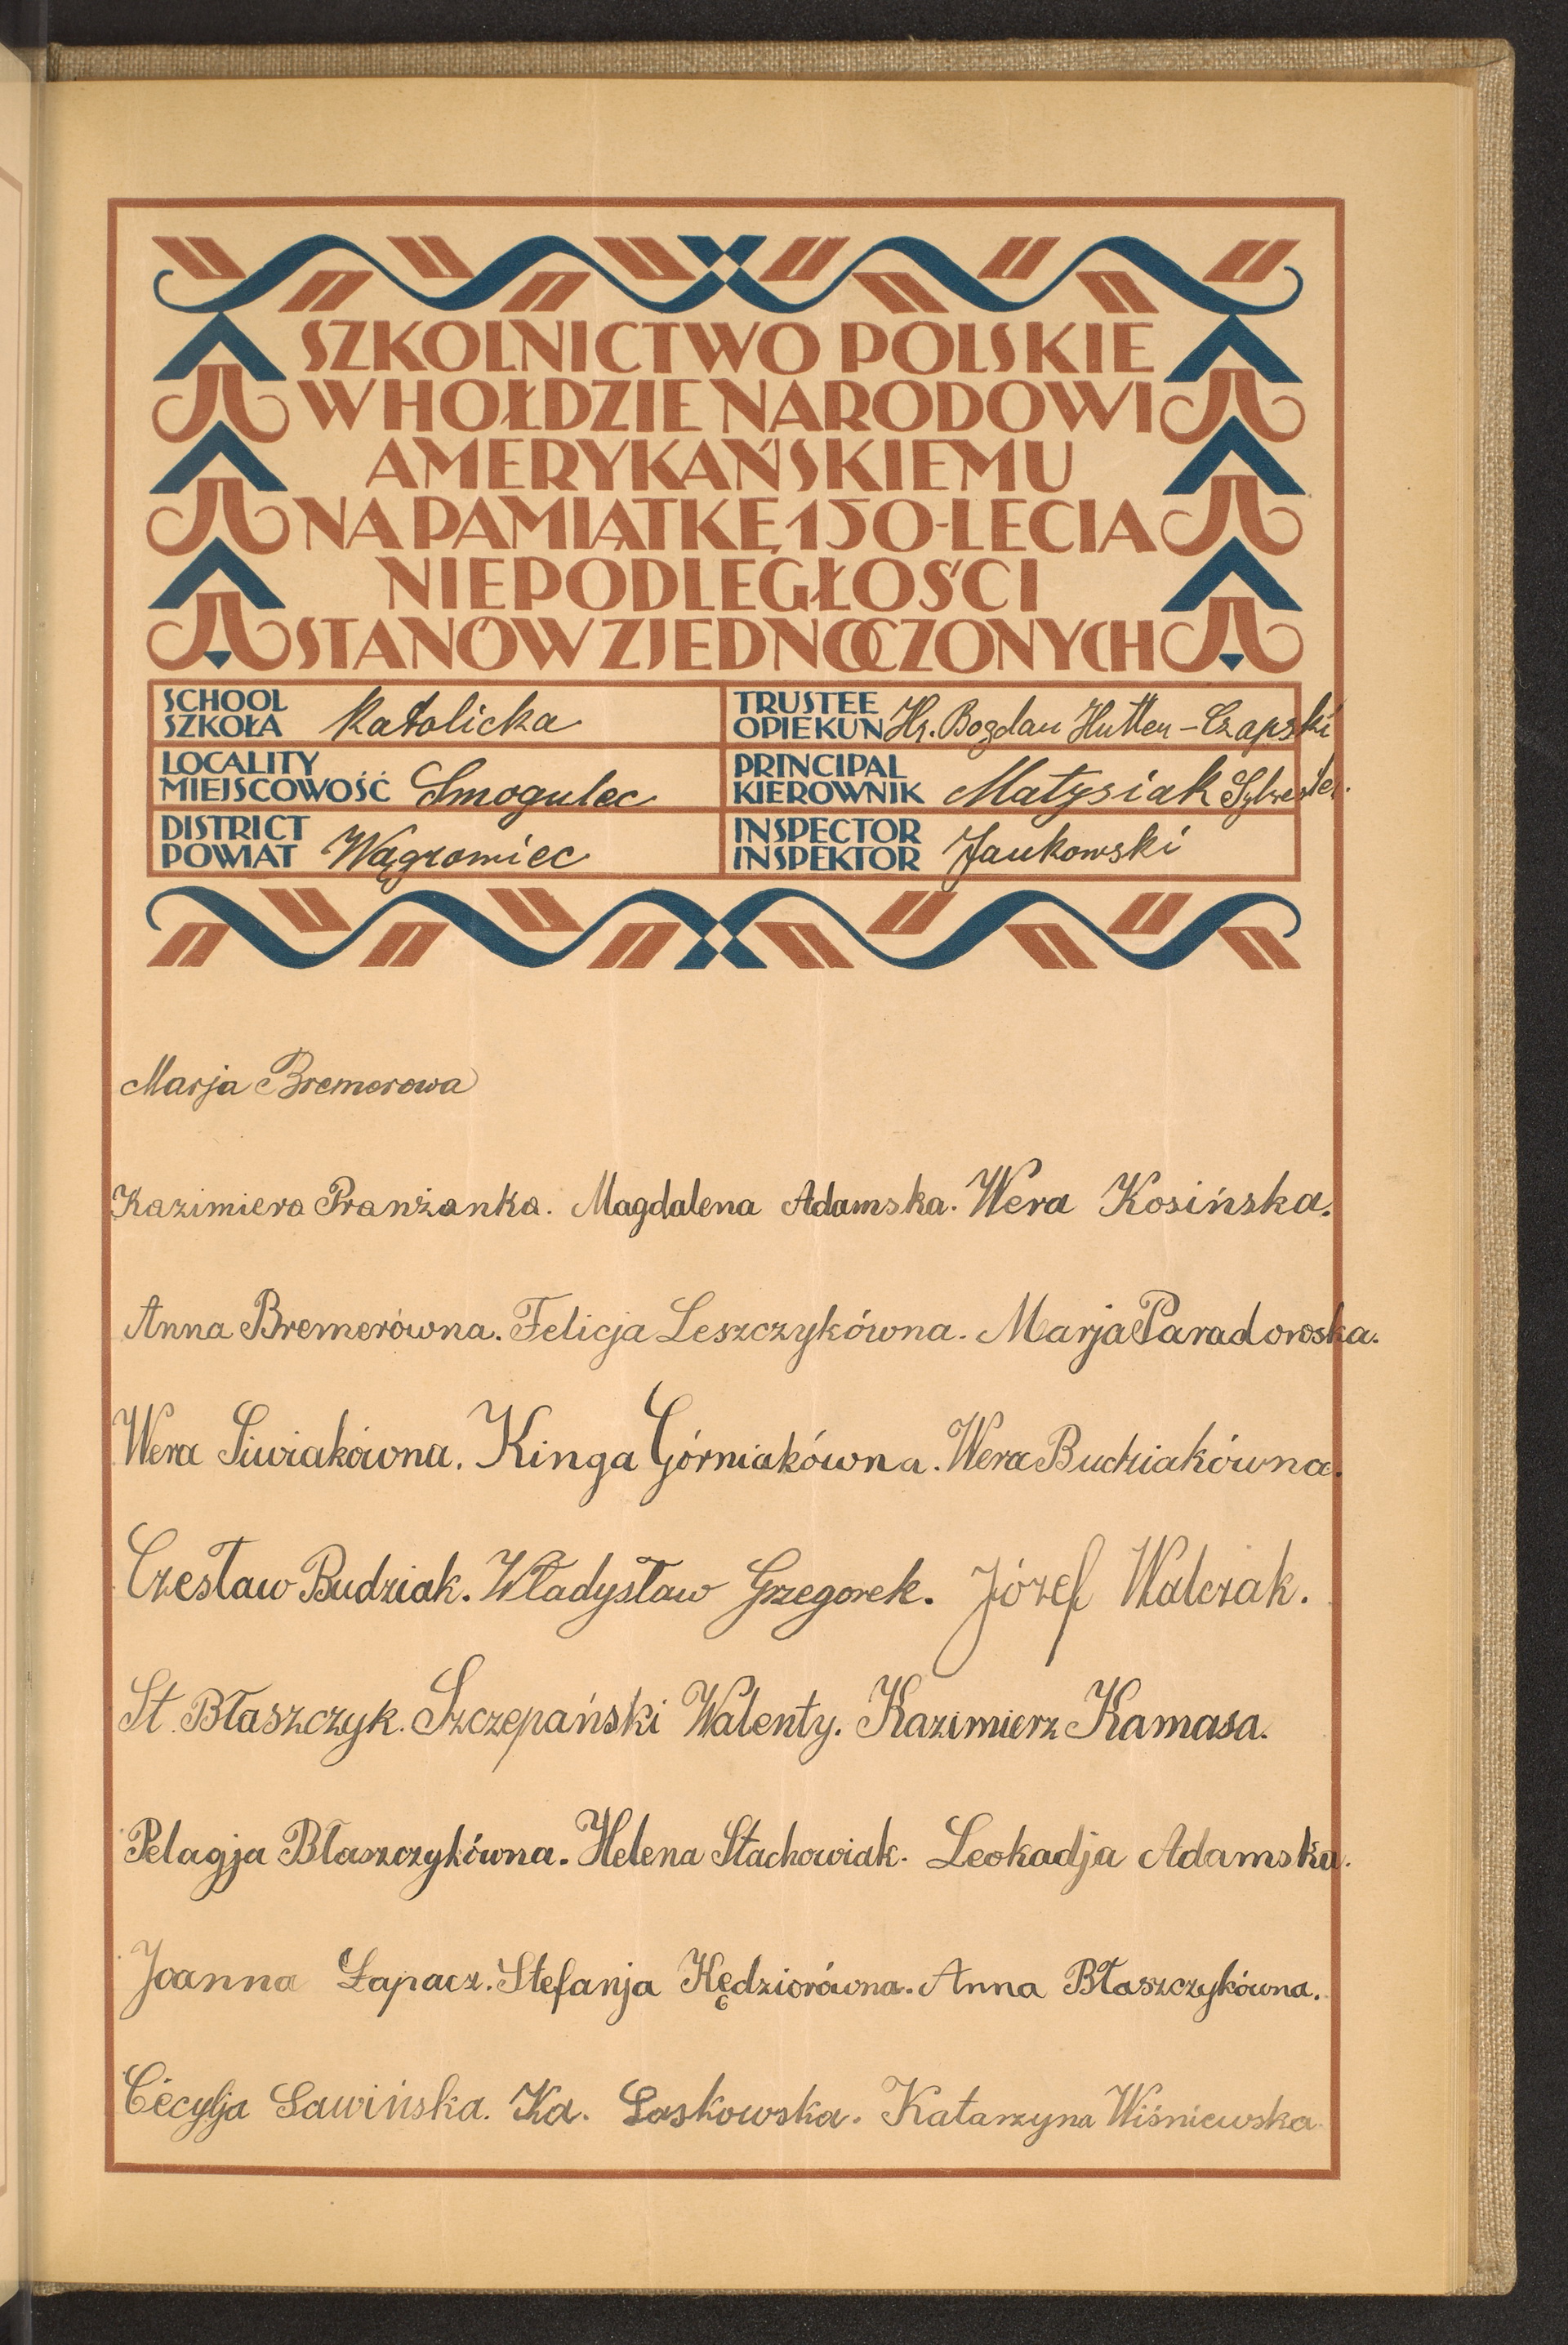 SZKOLNICTWO POLSKIE
W HOŁDZIE NARODOWI
AMERYKAŃSKIEMU
NA PAMIĄTKĘ 150-LECIA
NIEPODLEGŁOŚCI
STANÓW ZJEDNOCZONYCH
SCHOOL
SZKOŁA Katolicka
TRUSTEE
OPIEKUN Hr. Bogdan Hutten-Czapski
LOCALITY
MIEJSCOWOŚĆ Smogulec
PRINCIPAL
KIEROWNIK Matysiak Sylwester.
DISTRICT
POWIAT Wągrowiec
INSPECTOR
INSPEKTOR Jankowski
Marja Bremerowa
Kazimiera Pranżanka. Magdalena Adamska. Wera Kosińska.
Anna Bremerówna. Felicja Leszczykówna. Marja Paradowska.
Wera Siwiakówna. Kinga Górniakówna. Wera Budziakówna.
Czesław Budziak. Władysław Grzegorek. Józef Walczak.
St. Błaszczyk. Szczepański Walenty. Kazimierz Kamasa.
Pelagja Błaszczykówna. Helena Stachowiak. Leokadja Adamska.
Joanna Łapacz. Stefanja Kędziorówna. Anna Błaszczykówna.
Cecylja Sawińska. Ka. Laskowska. Katarzyna Wiśniewska.